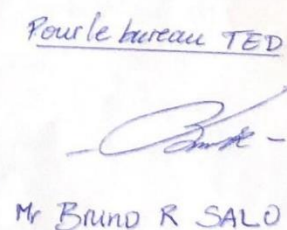 Pour le bureau TED
Mr Bruno R SALO